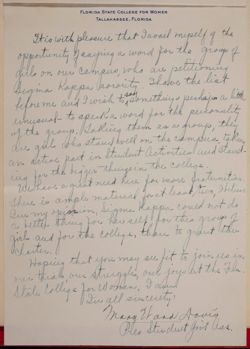 FLORIDA STATE COLLEGE FOR WOMEN
TALLAHASSEE, FLORIDA
It is with pleasure that I avail myself of the
opportunity of saying a word for the group of
girls on our campus who are petitioning
Sigma Kappa sorority. I have the list
before me and I wish to say something perhaps a little
unusual to speak a word for the personality
of the group. Taking them as a group, they
are girls who stand well on the campus, taking
an active part in Student Activities and stand-
ing for the bigger things in the college.
We have a great need here for more fraternities.
There is ample material for at least two. I believe
Sigma Kappa could not do
a better thing for herself, for this group of
girls and for the college, than to grant this
charter.
Hoping that you may see fit to join us in
our struggle and
State College for Women, I am
In all sincerity
Mary Ward Davis
Pres Student Govt Ass.